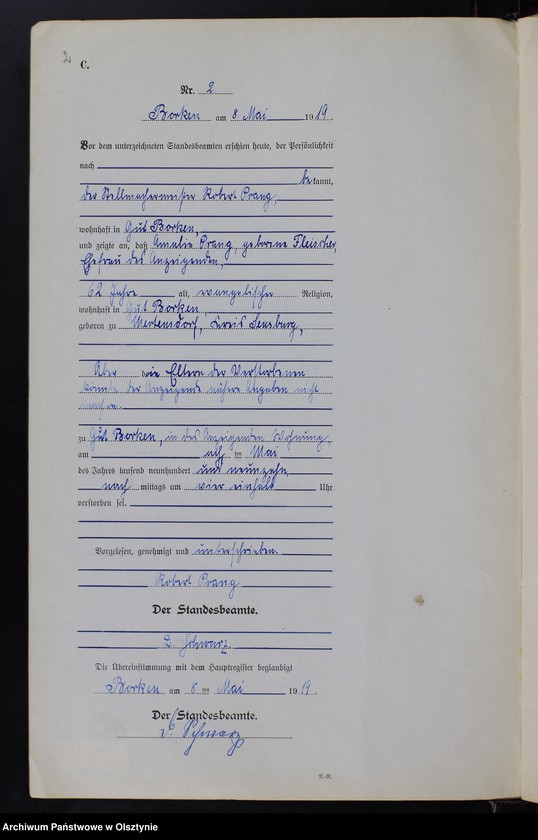 2
C.
Nr. 2
Borken am 8. Mai 1919.
Vor dem unterzeichneten Standesbeamten erschien heute, der Persönlichkeit
nach
bekannt,
der Stellmachermeister Robert Prang,
wohnhaft in Gut Borken,
und zeigte an, daß Amalie Prang, geborene Fleischer,
Ehefrau des Anzeigenden,
62 Jahre alt, evangelischer Religion,
wohnhaft in Gut Borken,
geboren zu Mertensdorf, Kreis Sensburg,
Über die Eltern der Verstorbenen
konnte der Anzeigende nähere Angaben nicht
machen.
zu Gut Borken, in des Anzeigenden Wohnung,
am acht ten Mai
des Jahres tausend neunhundert und neunzehn,
nach mittags um vier einhalb Uhr
verstorben sei.
Vorgelesen, genehmigt und unterschrieben.
Robert Prang
Der Standesbeamte.
Schwarz
Die Übereinstimmung mit dem Hauptregister beglaubigt
Borken am 8 ten Mai 1919.
Der Standesbeamte.
Schwarz
R.-R.
Archiwum Państwowe w Olsztynie